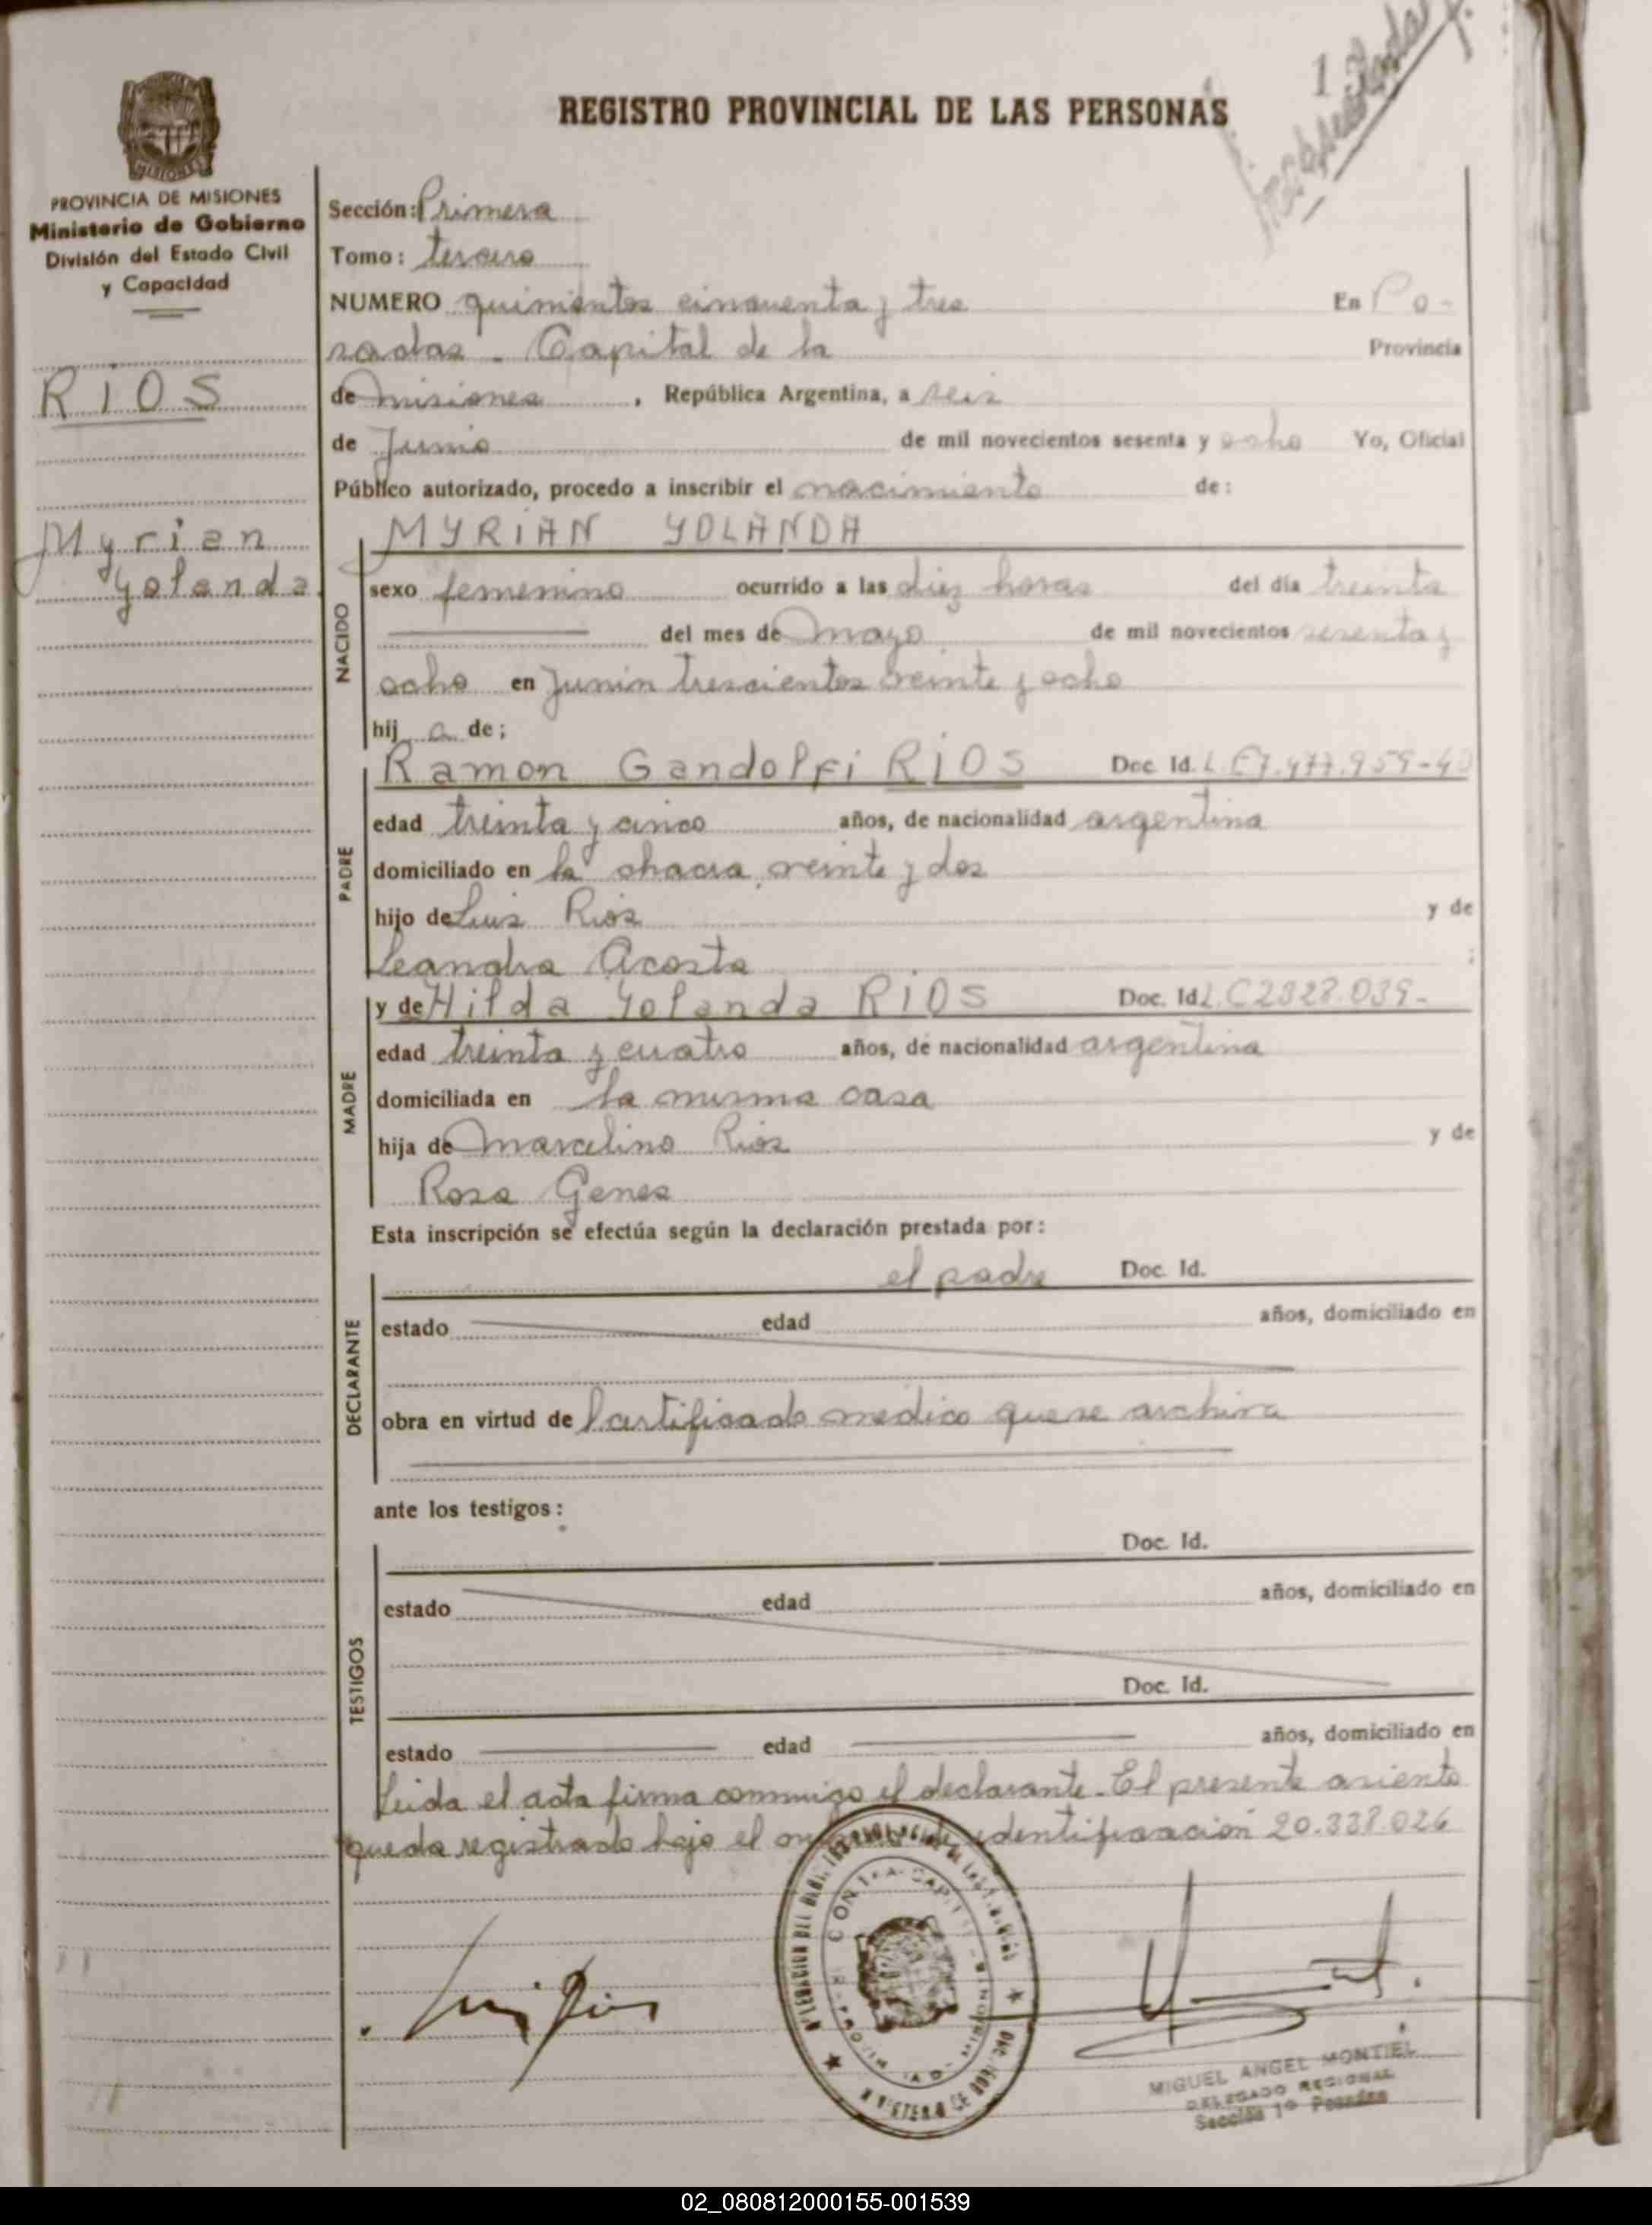 REGISTRO PROVINCIAL DE LAS PERSONAS
MISIONES
PROVINCIA DE MISIONES
Ministerio de Gobierno
División del Estado Civil
y Capacidad
RIOS
Myrian
Yolanda
Sección: Primera
Tomo: tercero
NUMERO quinientos cincuenta y tres En Po-
sadas - Capital de la Provincia
de misiones, República Argentina, a seis
de Junio de mil novecientos sesenta y ocho Yo, Oficial
Público autorizado, procedo a inscribir el nacimiento de:
MYRIAN YOLANDA
NACIDO
sexo femenino ocurrido a las diez horas del día treinta
del mes de mayo de mil novecientos sesenta y
ocho en Junin trescientos veinte y ocho
hija de;
PADRE
Ramon Gandolfi RIOS Doc. Id. L.E 7.477.959-
edad treinta y cinco años, de nacionalidad argentina
domiciliado en la chacra veinte y dos
hijo de Luis Rios y de
Leandra Acosta ;
MADRE
y de Hilda Yolanda RIOS Doc. Id L.C 2328.039-
edad treinta y cuatro años, de nacionalidad argentina
domiciliada en la misma casa
hija de Marcelino Rios y de
Rosa Genes
Esta inscripción se efectúa según la declaración prestada por:
DECLARANTE
el padre Doc. Id.
estado edad años, domiciliado en
obra en virtud de Certificado medico que se archiva
ante los testigos:
TESTIGOS
Doc. Id.
estado edad años, domiciliado en
Doc. Id.
estado edad años, domiciliado en
Leida el acta firma conmigo el declarante - El presente asiento
queda registrado bajo el identificación 20.338.026
MIGUEL ANGEL MONTIEL
DELEGADO REGIONAL
Sección 1ª Posadas
02_080812000155-001539